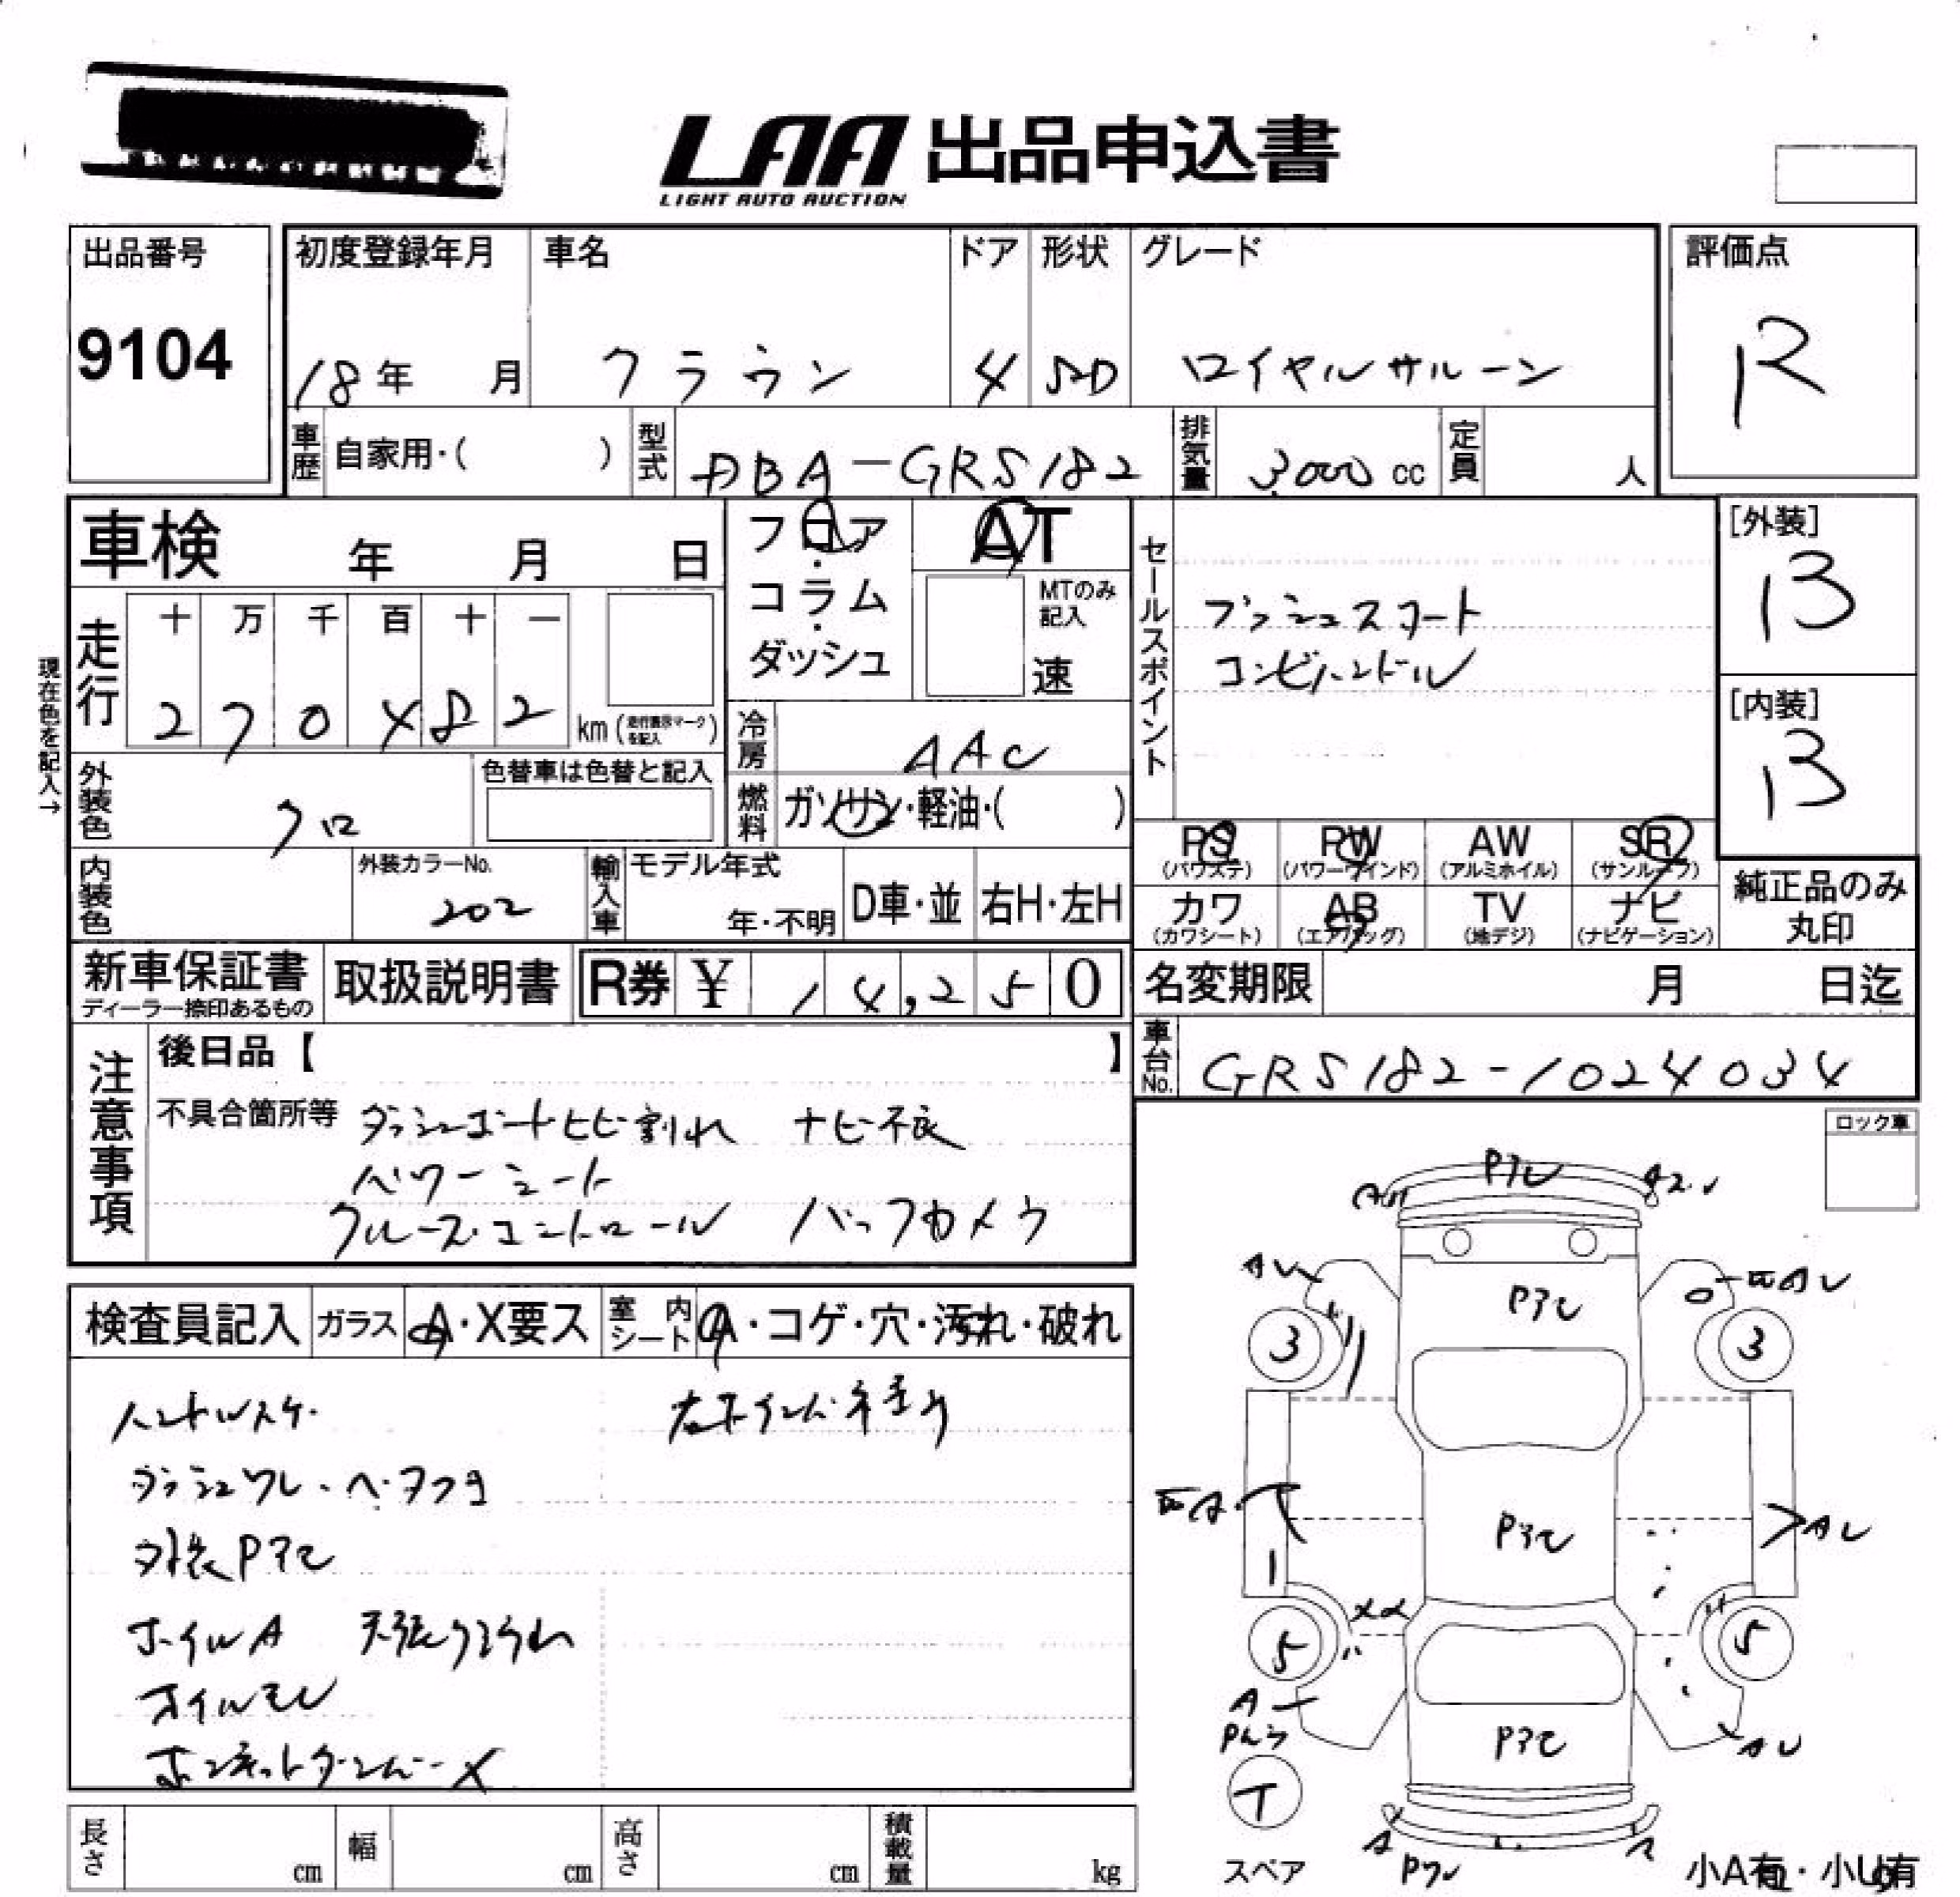 LAA 出品申込書
LIGHT AUTO AUCTION
出品番号
9104
初度登録年月
18年 月
車名
クラウン
ドア
4
形状
SD
グレード
ロイヤルサルーン
評価点
R
車歴 自家用・( )
型式 DBA-GRS182
排気量 3,000 cc
定員 人
車検 年 月 日
フロア・コラム・ダッシュ
AT
MTのみ記入
速
セールスポイント
プッシュスタート
コンビハンドル
[外装]
B
[内装]
B
現在色を記入→
走行
十 万 千 百 十 一
2 7 0 4 8 2
km (走行表示マークを記入)
冷房 AAC
外装色 クロ
色替車は色替と記入
燃料 ガソリン・軽油・( )
PS (パワステ)
PW (パワーウインド)
AW (アルミホイル)
SR (サンルーフ)
カワ (カワシート)
AB (エアバッグ)
TV (地デジ)
ナビ (ナビゲーション)
純正品のみ丸印
内装色
外装カラーNo.
202
輸入車
モデル年式
年・不明
D車・並
右H・左H
新車保証書
ディーラー捺印あるもの
取扱説明書
R券 ¥ 14,250
名変期限 月 日迄
車台No. GRS182-1024034
注意事項
後日品【 】
不具合箇所等 ダッシュボードヒビ割れ ナビ不良
パワーシート
クルーズコントロール バックカメラ
ロック車
検査員記入
ガラス A・X要ス
室内シート A・コゲ・穴・汚れ・破れ
ハンドルスケ
ダッシュワレ・ベタつき
外装Pアセ
ホイルA
オイルモレ
Pアセ
A
AU
3
3
Pアセ
Pアセ
AU
5
5
A
Pアセ
AU
T
A
スペア
小A有・小U有
長さ cm
幅 cm
高さ cm
積載量 kg